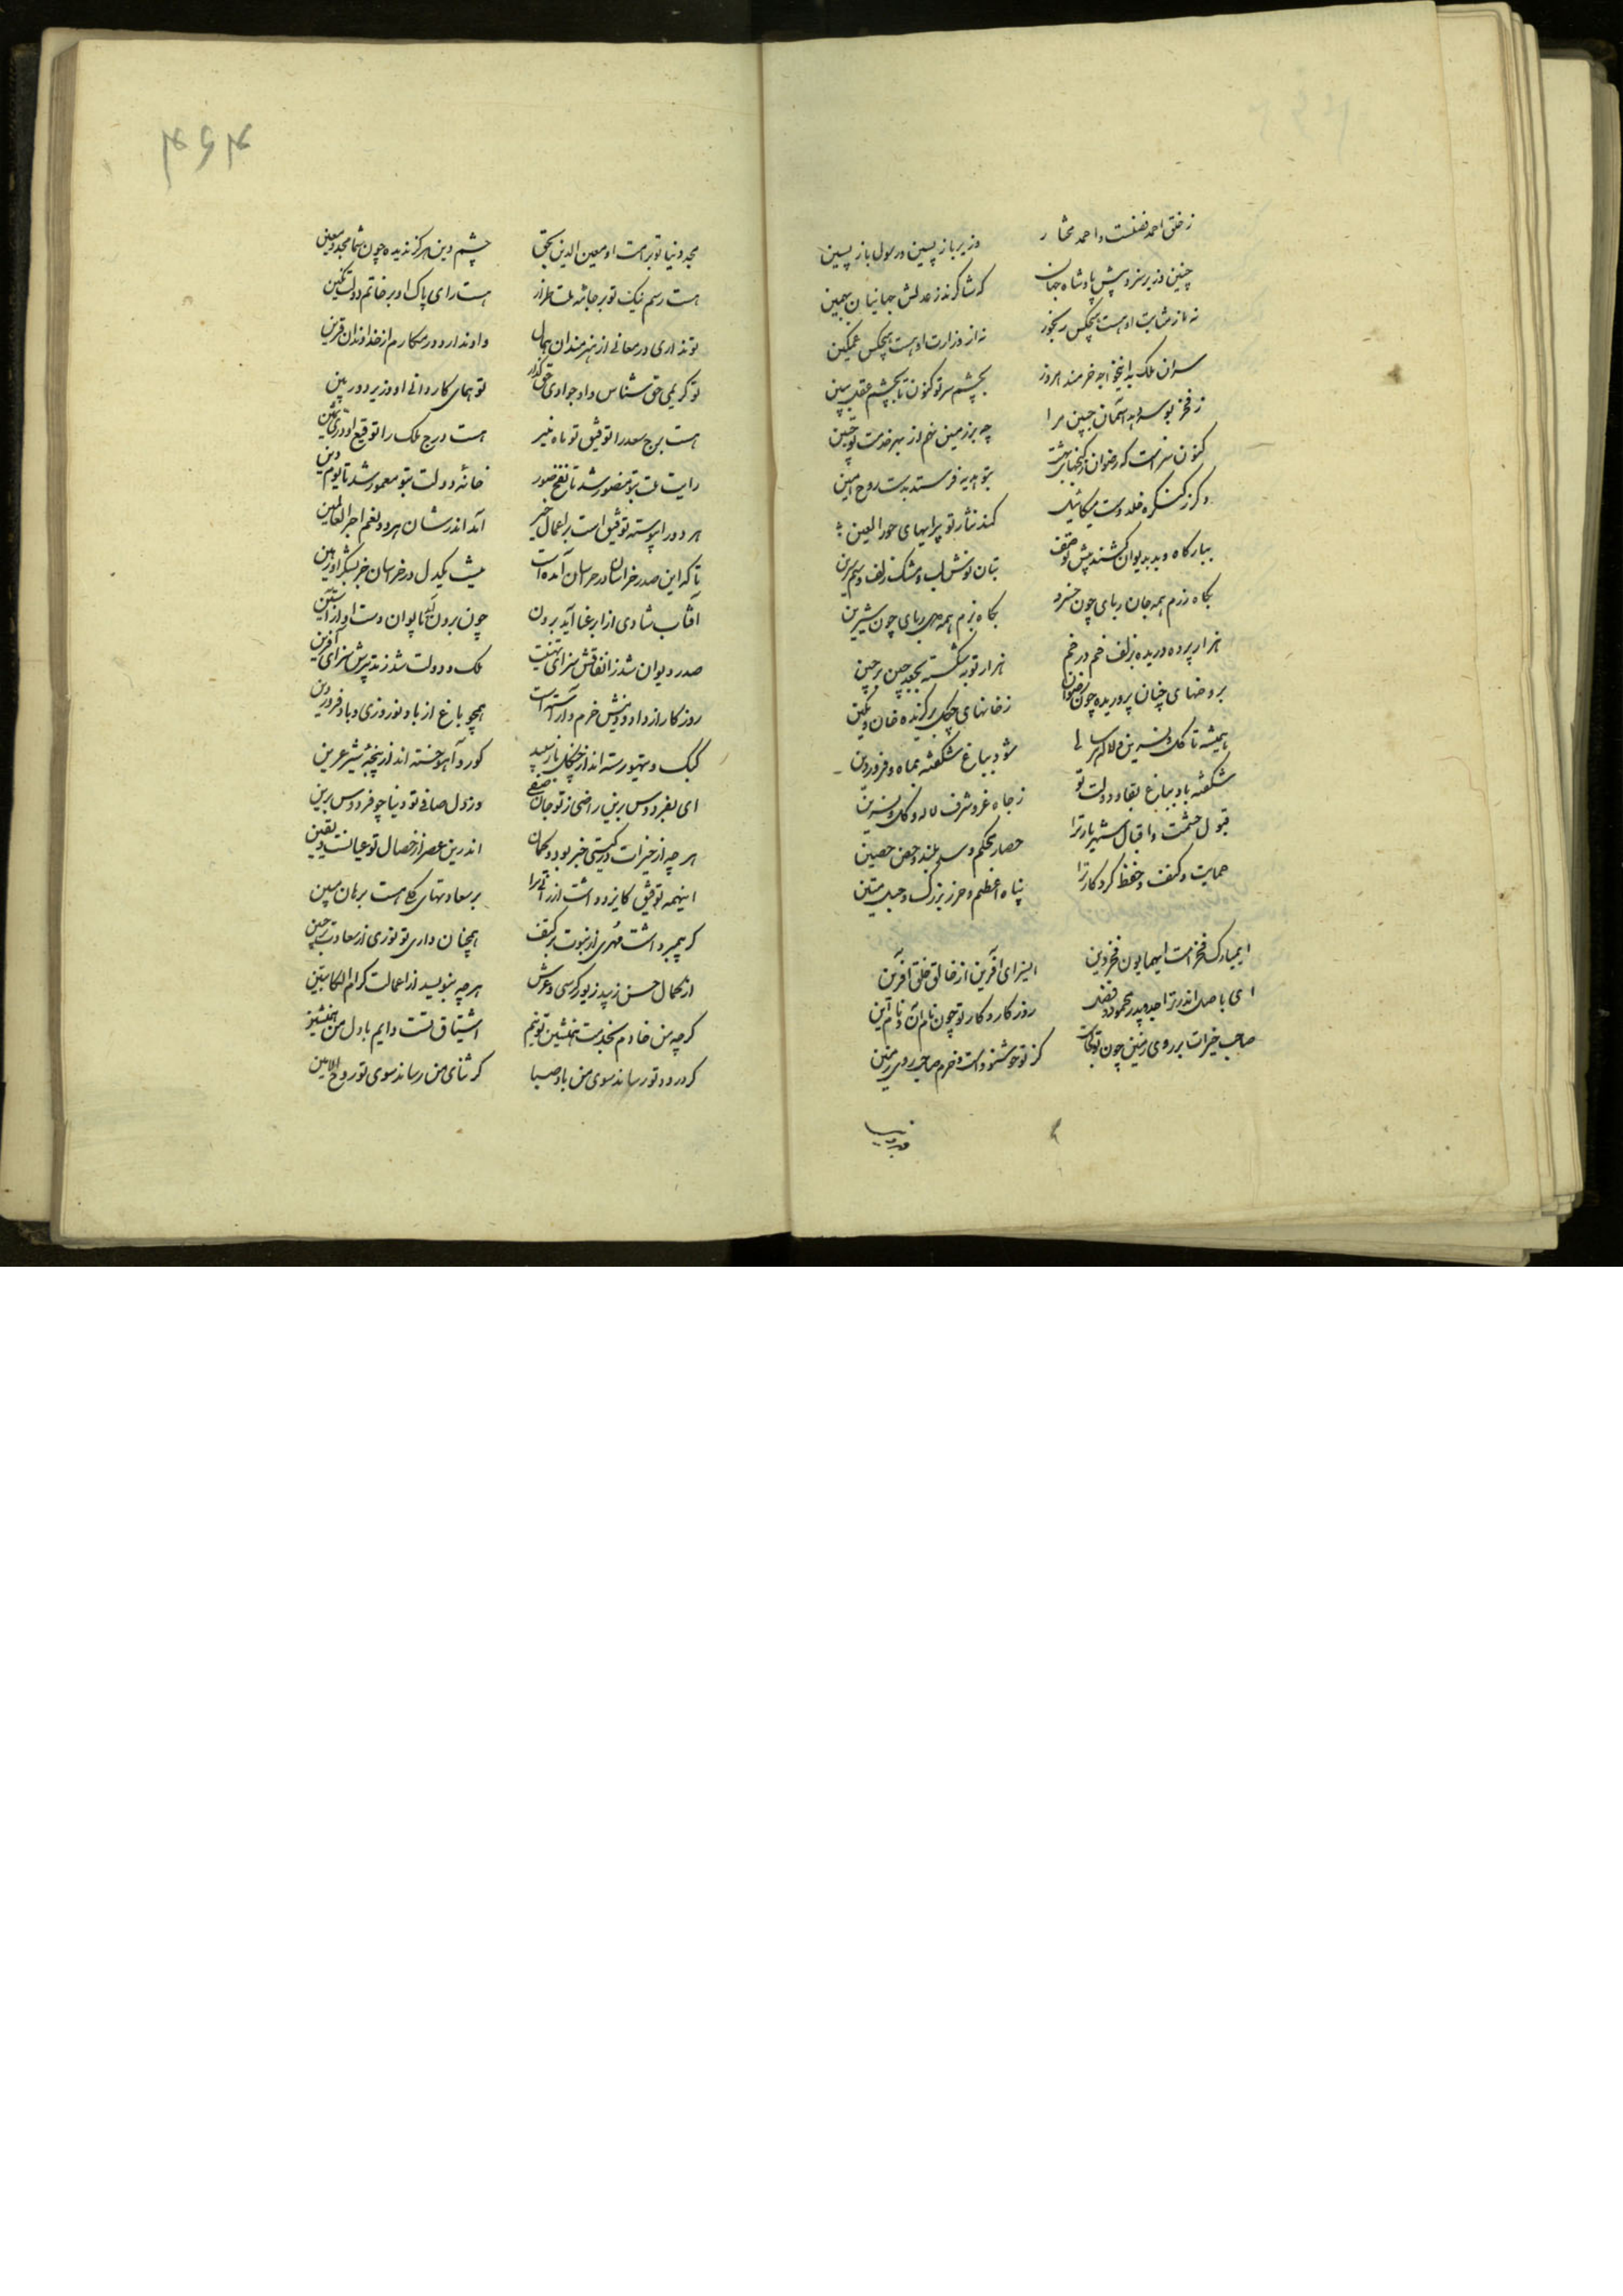 ز خلق احمد فضلست و احمد مختار وزیر باز پسین و رسول باز پسین
چنین وزیر سزد پیش پادشاه جهان که شاکرند ز عدلش جهانیان همین
نه از مثابت او هست هیچکس رنجور نه از وزارت او هست هیچکس غمگین
سران ملک بدین خواجه خرمند امروز بچشم سر تو کنون تا بچشم عقل ببین
ز فخر بوسه دهد آسمان جبین مرا چه بر زمین نهم از بهر خدمت تو جبین
کنون سزاست که رضوان ز گنجهای بهشت بتو هدیه فرستد بدست روح امین
و کر ز کنگره خلد دست میکائیل کند نثار تو پیرایهای حور العین
ببارگاه و بدیوان کشند پیش تو صف بتان نوش لب و مشک زلف و سیم سرین
بگاه رزم همه جان ربای چون خسرو بگاه بزم همه دل ربای چون شیرین
هزار پرده دریده بزلف خم در خم هزار توبه شکسته بجعد چین بر چین
بروضهای چنان پروریده چون رضوان ز خانهای چگل برگزیده خان و تکین
همیشه تا گل و نسرین و لاله هر سالی شود بباغ شکفته بماه فروردین
شکفته باد بباغ بقا و دولت تو ز جاه و عز و شرف لاله و گل و نسرین
قبول حشمت و اقبال شهریار ترا حصار محکم و سد بلند و حصن حصین
حمایت و کنف و حفظ کردگار ترا پناه اعظم و حرز بزرگ و حبل متین
ای مبارک فخر امت ای همایون فخر دین ای سزای آفرین از خالق خلق آفرین
ای باصل اندر ترا جد و پدر محمود و فضل روزگار و کار تو چون نام آن و نام این
صاحب خیرات بر روی زمین چون تو کجاست کز تو خوشنود است و خرم صاحب روی زمین
مجد دنیا تو براست او معین الدین بحق چشم دین هرگز ندیده چون شما مجد و معین
هست رسم نیک تو بر جامه ملت طراز هست رای پاک او بر خاتم دولت نگین
تو نداری در معانی از هنرمندان همال و او ندارد در مکارم از خداوندان قرین
تو کریمی حق شناس و او جوادی حق گذار تو همای کاردانی او وزیر دوربین
هست برج سعد را توفیق تو ماه منیر هست درج ملک را توقیع او در ثمین
رایت ملت بتو منصور شد تا نفخ صور خانه دولت بتو معمور شد تا یوم دین
هر دو را پیوسته توفیق است بر اعمال خیر آمد اندر شان هر دو نعم اجر العاملین
تا که این صدر خراسان در خراسان آمده است نیست یکدل در خراسان جز بشکر او رهین
آفتاب شادی از ابر عنا آید برون چون برون آید بایوان دست او از آستین
صدر دیوان شد ز انفاقش سزای تهنیت ملک و دولت شد ز تدبیرش سزای آفرین
روزگار از داد و دینش خرم و آراست است همچو باغ از باد نوروزی و باد فرودین
کبک و تیهو رسته اند از چنگل باز سپید گور و آهو جسته اند از پنجه شیر عرین
ای بفردوس برین راضی ز تو جان صفی وز دل صافی تو دنیا چو فردوس برین
هر چه از خیرات در گیتی خبر بود و گمان اندرین عصر از خصال تو عیانست و یقین
اینهمه توفیق کایزد داشت ارزانی ترا بر سعادتهای کلی هست برهان مبین
گر پیمبر داشت مهری از نبوت بر کتف همچنان داری تو نوری از سعادت بر جبین
از کمال حسن زیبد زیور کرسی و عرش هر چه بنویسد ز اعمالت کرام الکاتبین
گر چه من خادم بخدمت همنشین تو نیم اشتیاق تست دایم با دل من همنشین
گر درود تو رساند سوی من باد صبا گر ثنای من رساند سوی تو روح الامین